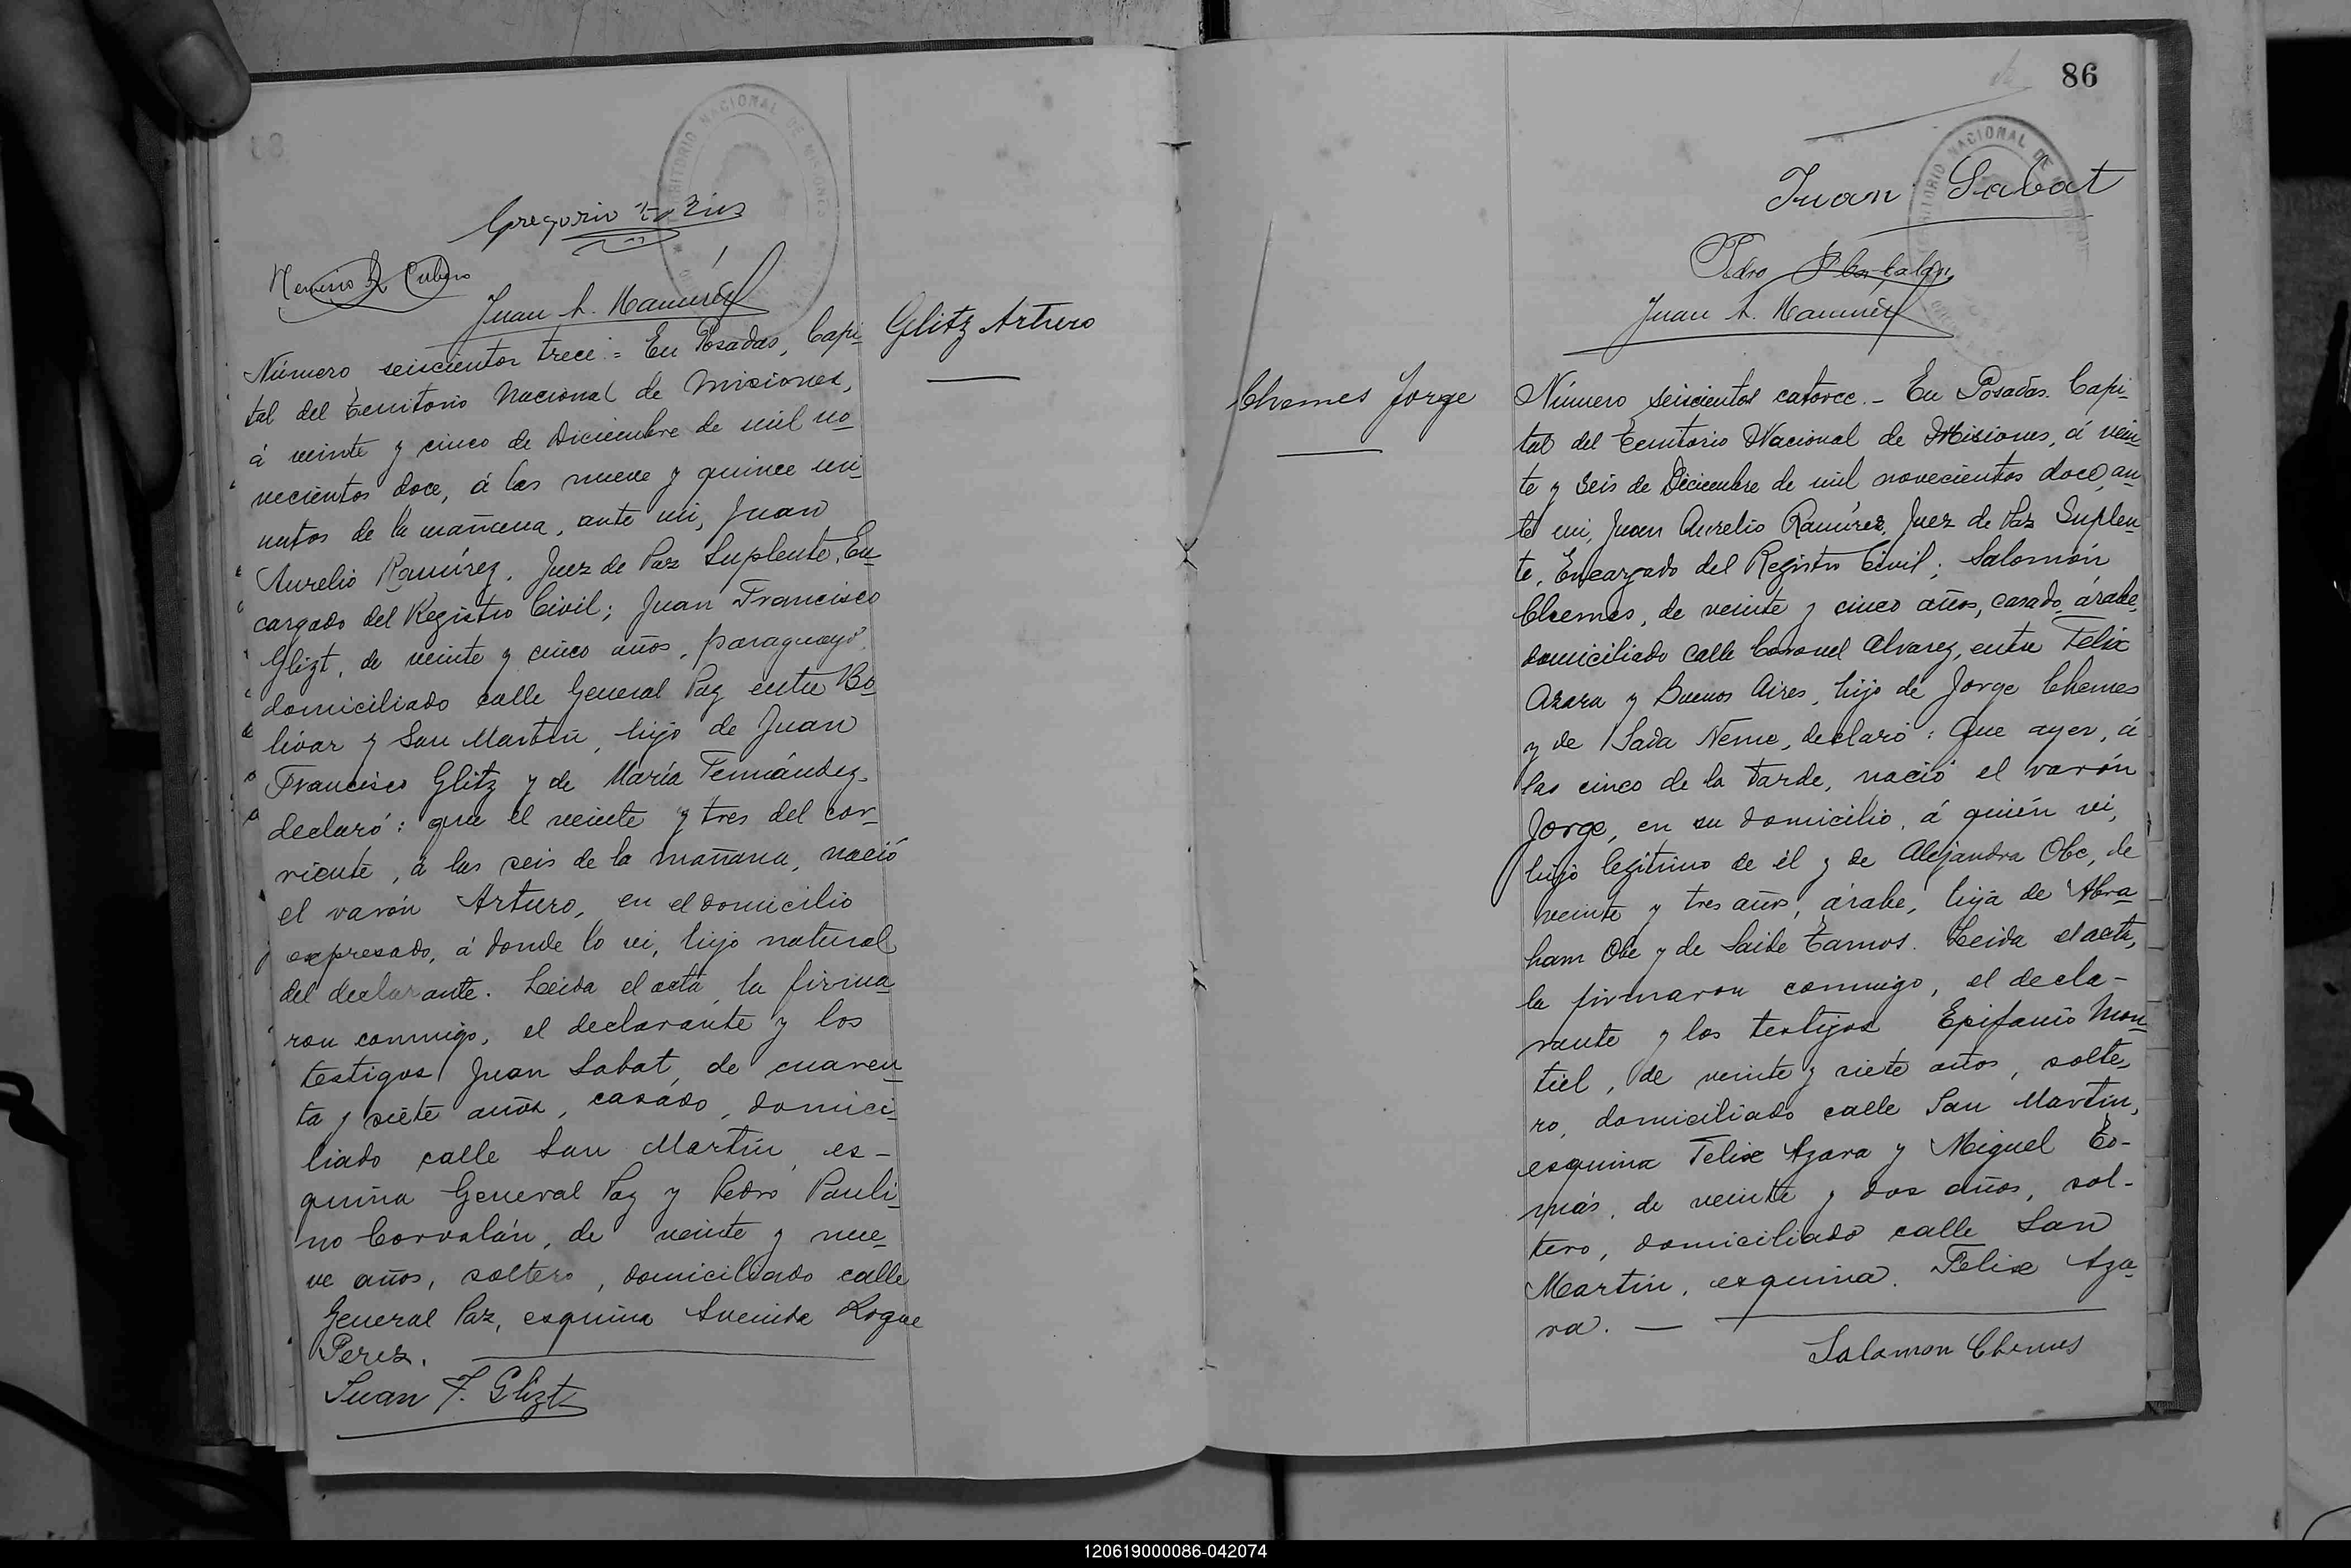 Gregorio
Juan A. Ramírez
Glitz Arturo
Número seiscientos trece:= En Posadas, Capi-
tal del Territorio Nacional de Misiones,
á veinte y cinco de Diciembre de mil no-
vecientos doce, á las nueve y quince mi-
nutos de la mañana, ante mi, Juan
Aurelio Ramírez, Juez de Paz Suplente, En-
cargado del Registro Civil; Juan Francisco
Glizt, de veinte y cinco años, paraguayo,
domiciliado calle General Paz entre Bo-
lívar y San Martín, hijo de Juan
Francisco Glitz y de María Fernández,
declaró: que el veinte y tres del cor-
riente, á las seis de la mañana, nació
el varón Arturo, en el domicilio
expresado, á donde lo vi, hijo natural
del declarante. Leida el acta, la firma-
ron conmigo, el declarante y los
testigos Juan Sabat, de cuaren-
ta y siete años, casado, domici-
liado calle San Martín, es-
quina General Paz y Pedro Pauli-
no Corvalán, de veinte y nue-
ve años, soltero, domiciliado calle
General Paz, esquina Avenida Roque
Perez.
Juan F. Glizt
86
TERRITORIO NACIONAL DE MISIONES
Juan Sabat
Pedro P. Corbalan
Juan A. Ramírez
Chemes Jorge
Número seiscientos catorce.- En Posadas. Capi-
tal del Territorio Nacional de Misiones, á vein-
te y seis de Diciembre de mil novecientos doce, an-
te mi, Juan Aurelio Ramírez, Juez de Paz Suplen-
te, Encargado del Registro Civil; Salomón
Chemes, de veinte y cinco años, casado, árabe,
domiciliado calle Coronel Alvarez, entre Felix
Azara y Buenos Aires, hijo de Jorge Chemes
y de Sada Neme, declaró: Que ayer, á
las cinco de la tarde, nació el varón
Jorge, en su domicilio, á quién vi,
hijo legítimo de él y de Alejandra Obe, de
veinte y tres años, árabe, hija de Abra-
ham Obe y de Saide Tamos. Leida el acta,
la firmaron conmigo, el decla-
rante y los testigos Epifanio Mon-
tiel, de veinte y siete años, solte-
ro, domiciliado calle San Martín,
esquina Felix Azara y Miguel To-
más, de veinte y dos años, sol-
tero, domiciliado calle San
Martin, esquina. Felix Aza-
ra. —
Salomon Chemes
120619000086-042074